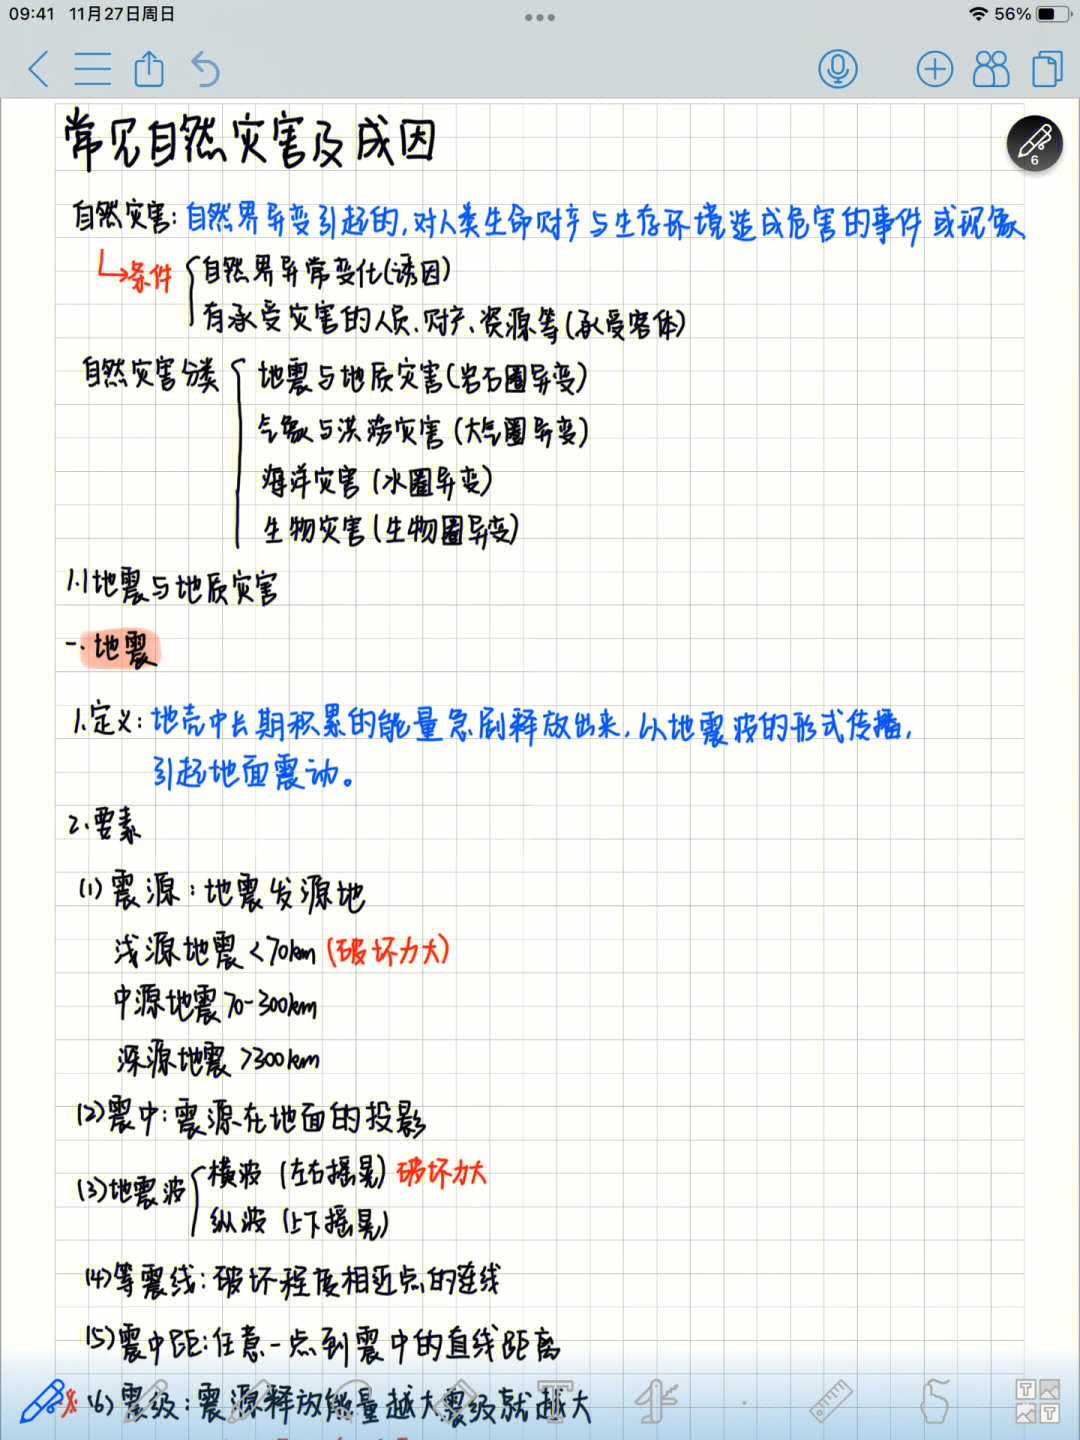 09:41 11月27日周日
56%
6
常见自然灾害及成因
自然灾害:自然界异变引起的,对人类生命财产与生存环境造成危害的事件或现象
条件
自然界异常变化(诱因)
有承受灾害的人员、财产、资源等(承受客体)
自然灾害分类
地震与地质灾害(岩石圈异变)
气象与洪涝灾害(大气圈异变)
海洋灾害(水圈异变)
生物灾害(生物圈异变)
1.1地震与地质灾害
一.地震
1.定义:地壳中长期积累的能量急剧释放出来,以地震波的形式传播,
引起地面震动。
2.要素
(1)震源:地震发源地
浅源地震<70km(破坏力大)
中源地震70-300km
深源地震>300km
(2)震中:震源在地面的投影
(3)地震波
横波(左右摇晃)破坏力大
纵波(上下摇晃)
(4)等震线:破坏程度相近点的连线
(5)震中距:任意一点到震中的直线距离
(6)震级:震源释放能量越大震级就越大